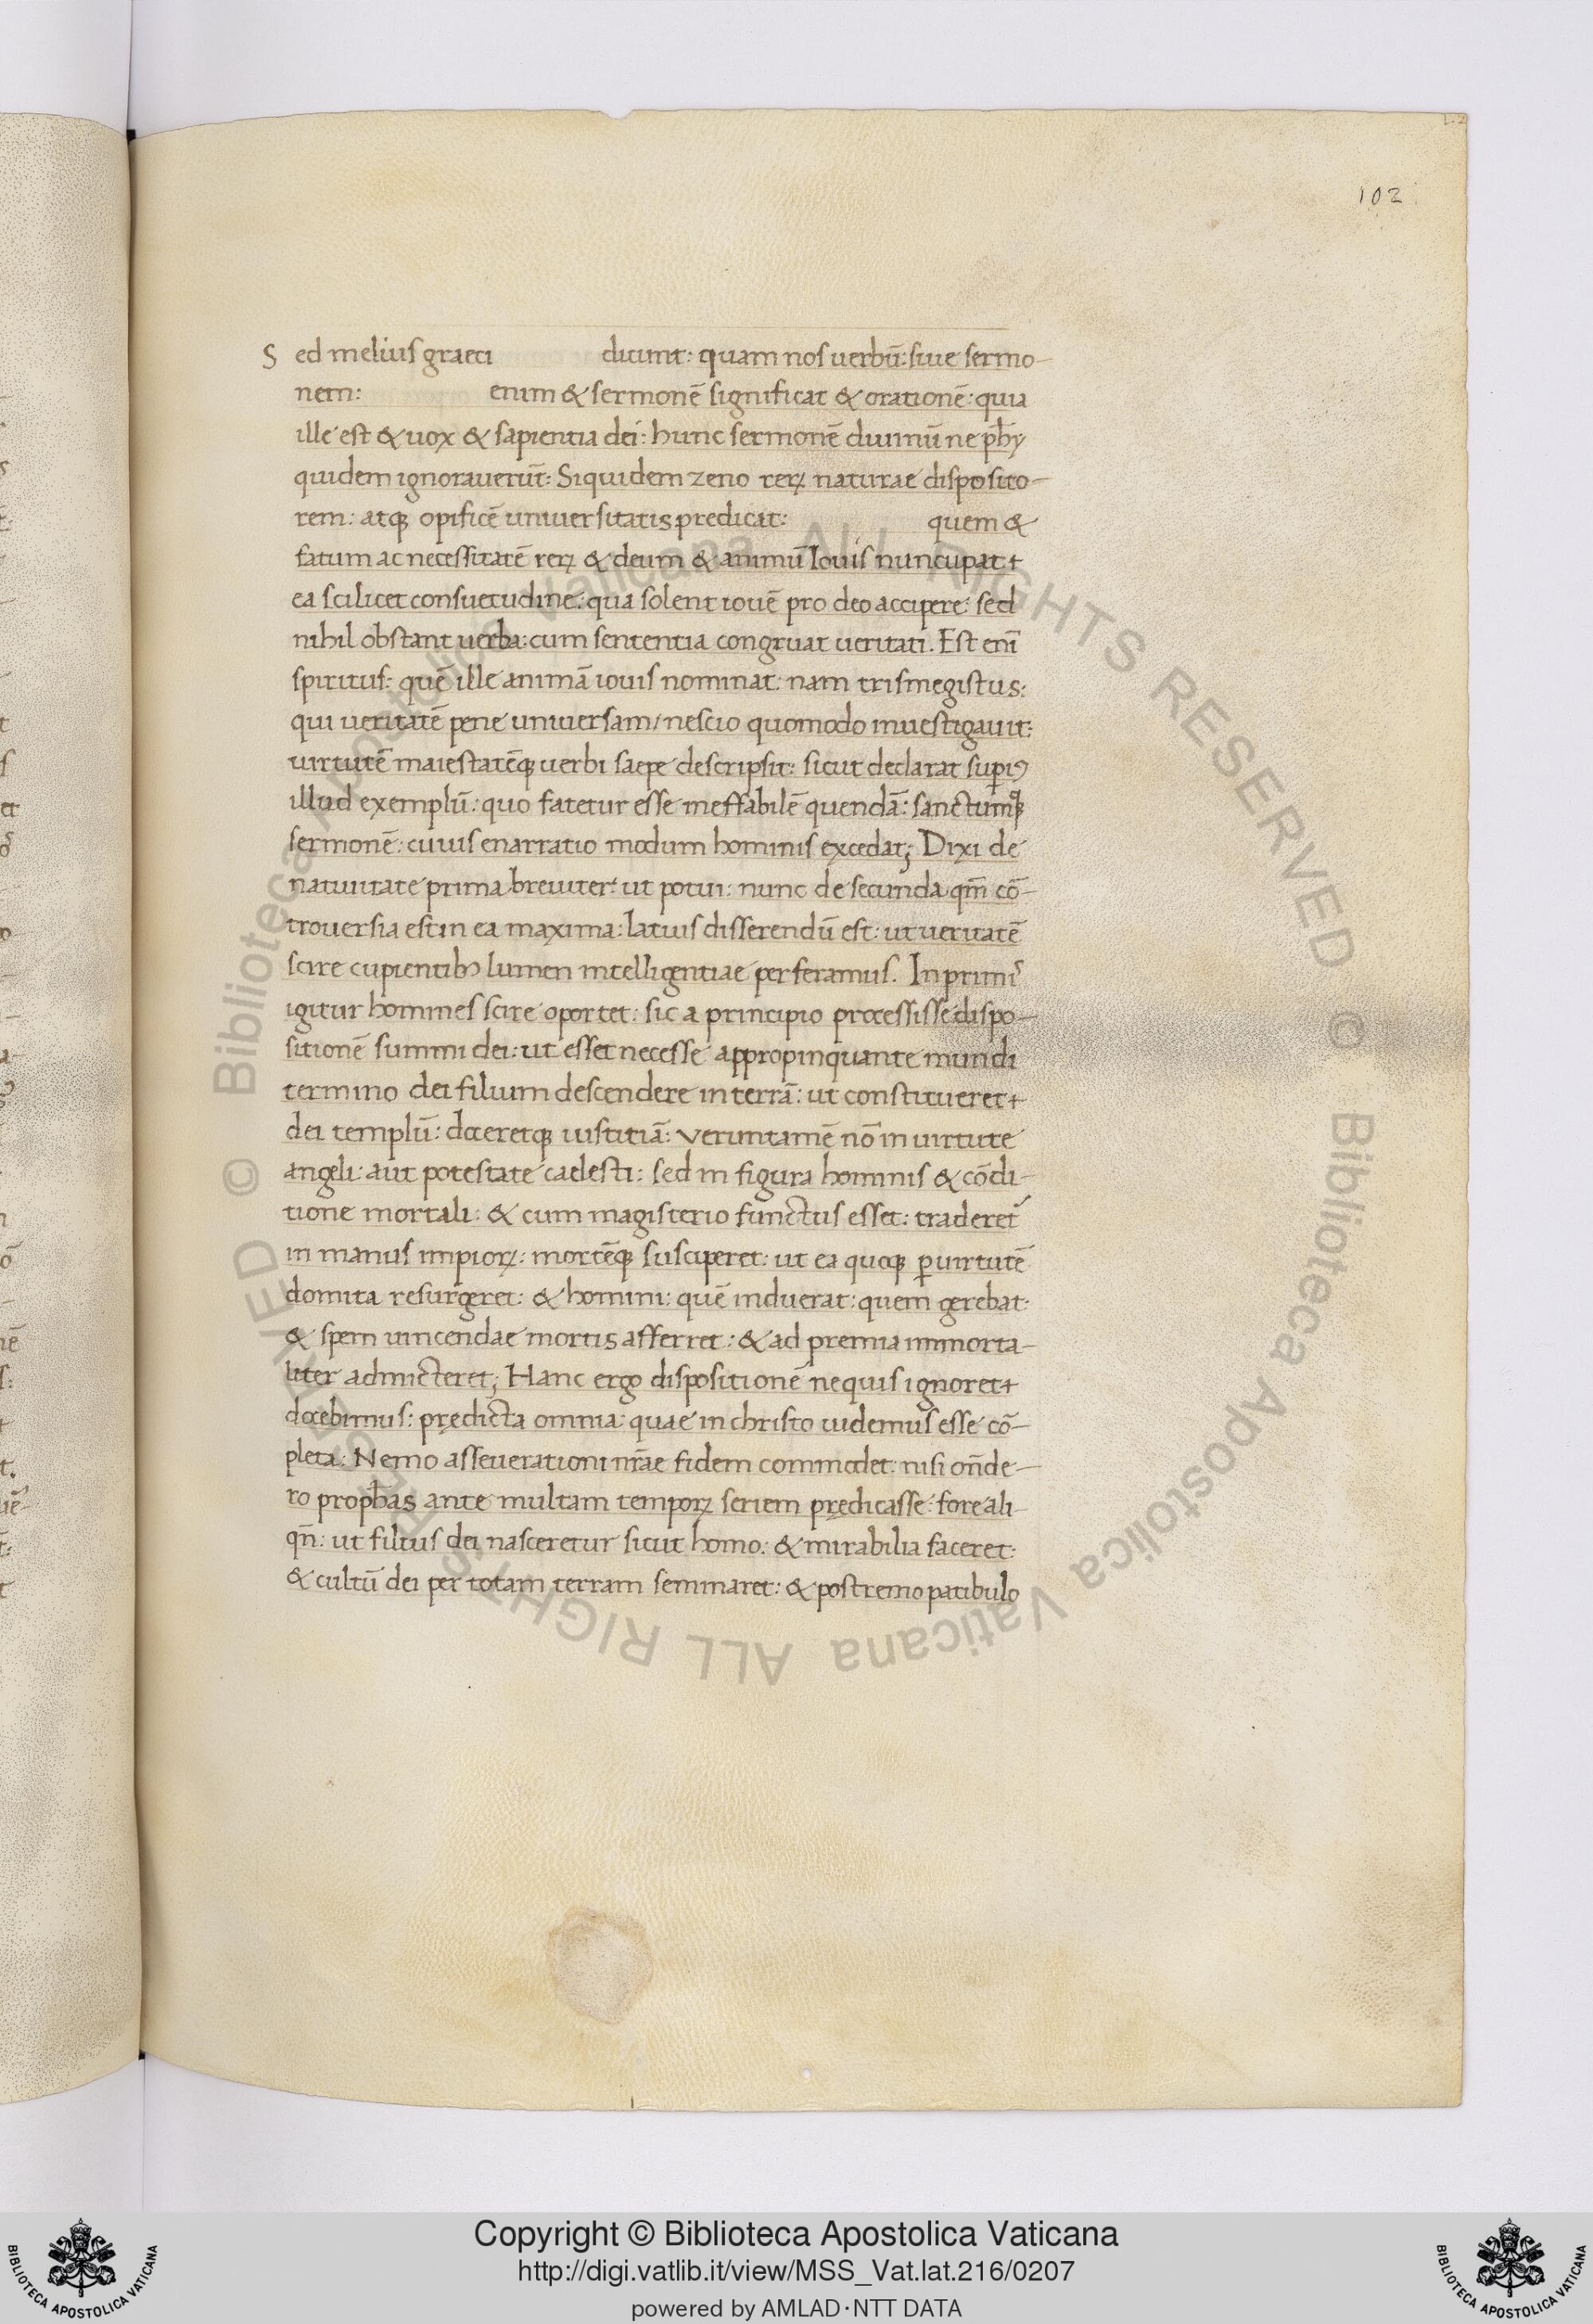 102
Sed melius graeci dicunt: quam nos uerbū: siue sermo-
nem: enim & sermonē significat & orationē: quia
ille est & uox & sapientia dei: hunc sermonē diuinū ne ph̄y
quidem ignorauerūt: Siquidem zeno rerꝝ naturae disposito-
rem: atqꝫ opificē uniuersitatis predicat: quem &
fatum ac necessitatē rerꝝ & deum & animū Iouis nuncupat:
ea scilicet consuetudine: qua solent iouē pro deo accipere: sed
nihil obstant uerba: cum sententia congruat ueritati. Est enī
spiritus: quē ille animā iouis nominat: nam trismegistus:
qui ueritatē pene uniuersam/ nescio quomodo inuestigauit:
uirtutē maiestatēqꝫ uerbi saepe descripsit: sicut declarat supiꝰ
illud exemplū: quo fatetur esse ineffabilē quendā: sanctumqꝫ
sermonē: cuius enarratio modum hominis excedat; Dixi de
natiuitate prima breuiter: ut potui: nunc de secunda qm̄ cō-
trouersia est in ea maxima: latius disserendū est: ut ueritatē
scire cupientibꝰ lumen intelligentiae perferamus. In primis
igitur homines scire oportet: sic a principio processisse dispo-
sitionē summi dei: ut esset necesse appropinquante mundi
termino dei filium descendere in terrā: ut constitueret
dei templū: doceretqꝫ iustitiā: Veruntamē nō in uirtute
angeli: aut potestate caelesti: sed in figura hominis & cōdi-
tione mortali: & cum magisterio functus esset: traderet᷒
in manus impiorꝝ: mortēqꝫ susciperet: ut ea quoqꝫ ꝑ uirtutē
domita resurgeret: & homini: quē induerat: quem gerebat:
& spem uincendae mortis afferret: & ad premia immorta-
liter admicteret; Hanc ergo dispositionē nequis ignoret
docebimus: prędicta omnia: quae in christo uidemus esse cō-
pleta: Nemo asseuerationi nr̄ae fidem commodet: nisi on̄de-
ro proph̄as ante multam temporꝝ seriem prędicasse: fore ali-
qn̄: ut filius dei nasceretur sicut homo: & mirabilia faceret:
& cultū dei per totam terram seminaret: & postremo patibulo
© Biblioteca Apostolica Vaticana ALL RIGHTS RESERVED © Biblioteca Apostolica Vaticana ALL RIGHTS RESERVED
BIBLIOTECA APOSTOLICA VATICANA
Copyright © Biblioteca Apostolica Vaticana
http://digi.vatlib.it/view/MSS_Vat.lat.216/0207
powered by AMLAD·NTT DATA
BIBLIOTECA APOSTOLICA VATICANA